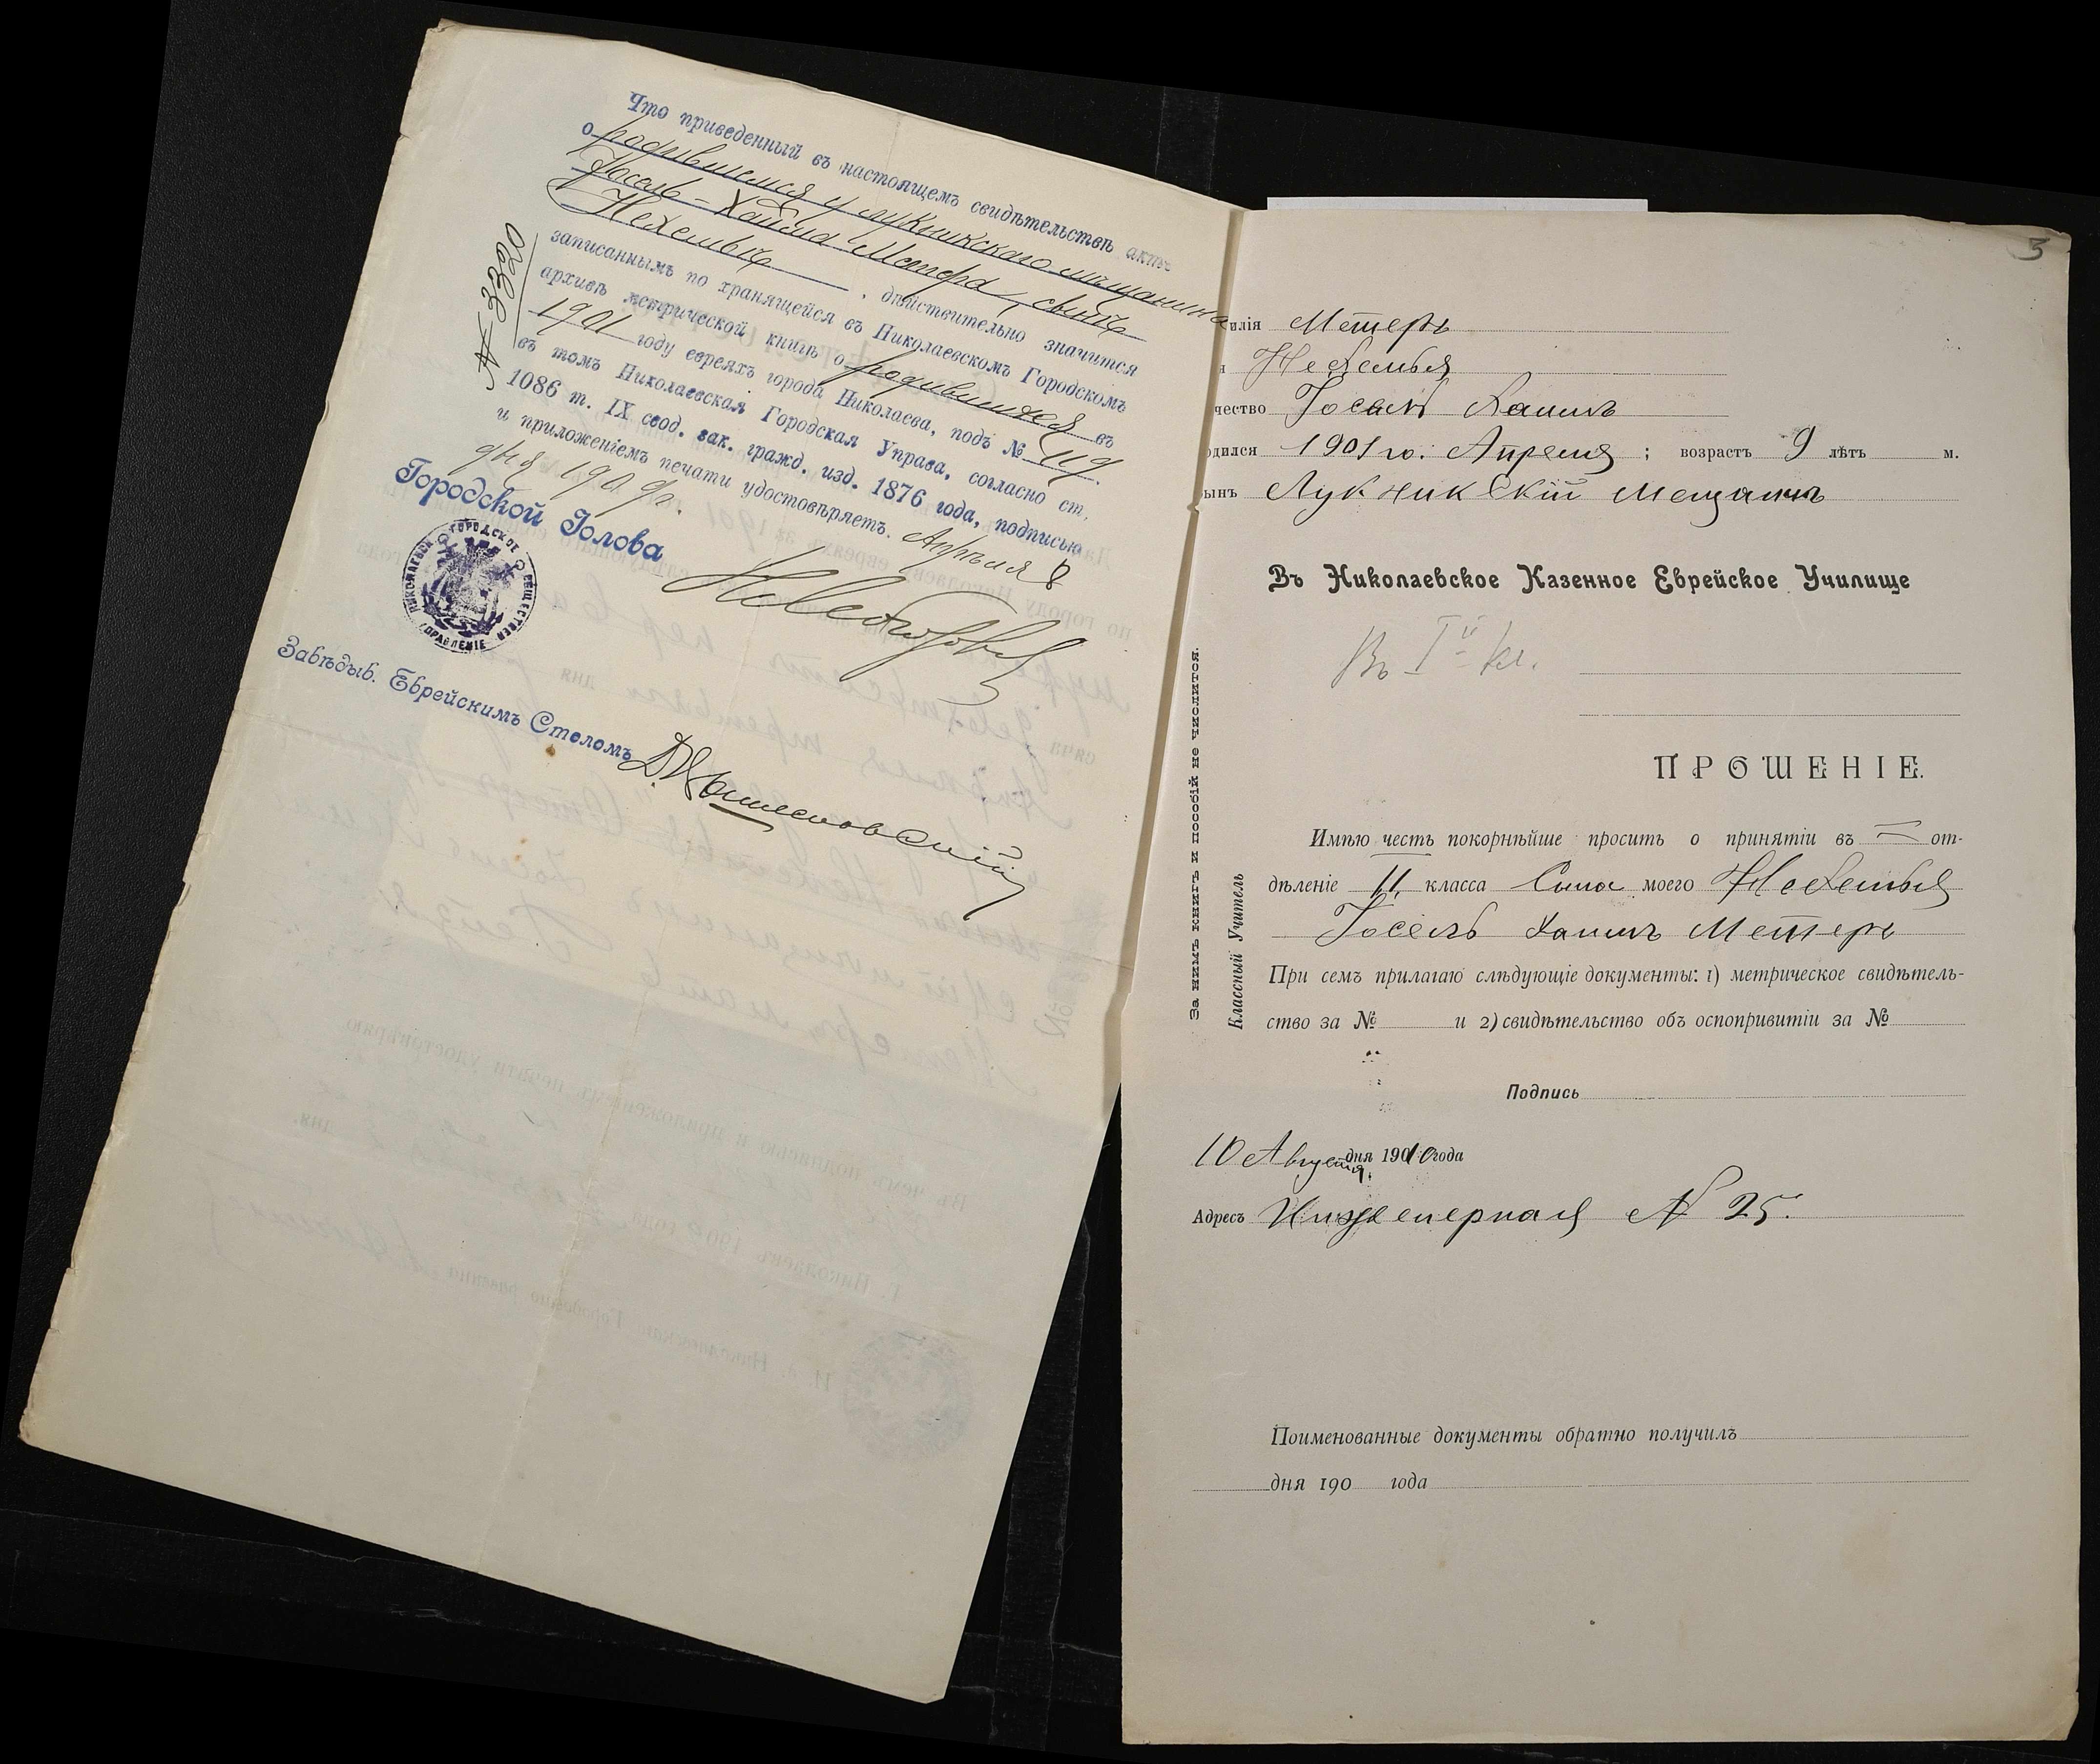 Что приведенный въ настоящемъ свидѣтельствѣ актъ
о родившемся у лукникского мѣщанина
Іосель-Хаима Метера, сынѣ
Нехемьѣ, дѣйствительно значится
записаннымъ по хранящейся въ Николаевскомъ Городскомъ
архивѣ метрической книгѣ о родившихся въ
1901 году евреяхъ города Николаева, подъ № 119.
въ томъ Николаевская Городская Управа, согласно ст.
1086 т. IX свод. зак. гражд. изд. 1876 года, подписью
и приложеніемъ печати удостовѣряетъ. Апрѣля 8
дня 1909 г.
№ 3320
Городской Голова
НИКОЛАЕВСК. ГОРОДСКОЕ ОБЩЕСТВЕН. УПРАВЛЕНІЕ
Завѣдыв. Еврейскимъ Столомъ
3
илія Метеръ
Нехемья
чество Іосель Хаимъ
одился 1901 го: Апреля ; возрастъ 9 лѣтъ м.
ынъ Лукникскій мещанинъ
Въ Николаевское Казенное Еврейское Училище
Въ Iй кл.
ПРОШЕНІЕ.
Имѣю честь покорнѣйше просить о принятіи въ от-
дѣленіе II. класса Сына моего Нехемья
Іосель Хаимъ Метеръ
При семъ прилагаю слѣдующіе документы: 1) метрическое свидѣтель-
ство за № и 2) свидѣтельство объ оспопривитіи за №
Подпись
10 Августа дня 1910 года
Адресъ Инженерная № 25.
Поименованные документы обратно получилъ
дня 190 года
За нимъ книгъ и пособій не числится.
Классный Учитель